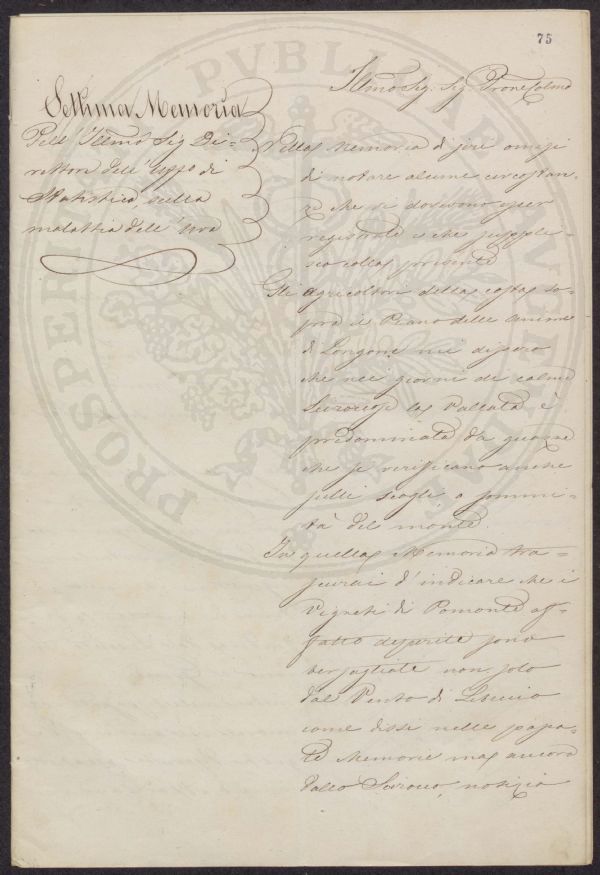 75
Illmo Sig. Sig. Prone Colmo
Settima Memoria
Pell' Illmo Sig Di-
rettore dell' Uffo di
Statistica sulla
malattia dell' uva
Nella Memoria di jeri omisi
di notare alcune circostan-
ze che si dovevano esser
registrate e che supplis-
co colla presente
Gli Agricoltori della costa so-
pra il Piano delle
di Longone mi dissero
che nei giorni di calma
Sciroccosa la Vallata è
predominata da guazze
che si verificano anche
sulli scogli e sommi-
tà del monte
In quella Memoria tra-
scurai d'indicare che i
Vigneti di Pomonte af-
fatto disparite sono
bersagliate non solo
dal Vento di Libeccio
come dissi nelle passa-
te Memorie ma ancora
dallo Scirocco, notizia
PROSPERITATI PVBLICAE AVGENDAE